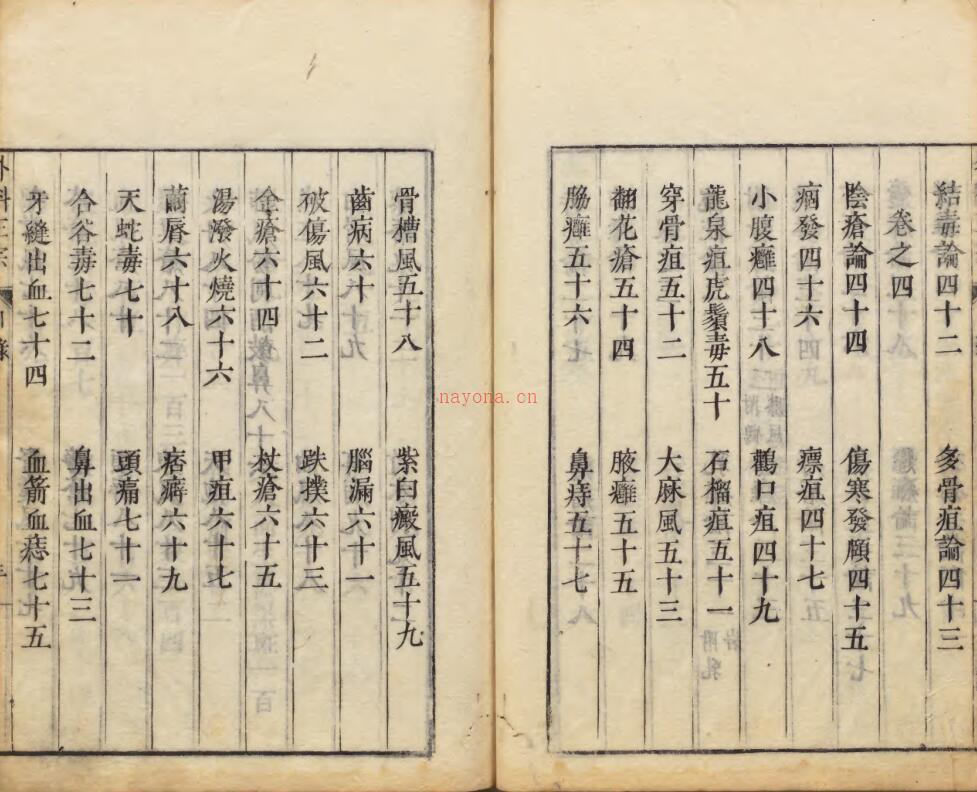 結毒論四十二　多骨疽論四十三
卷之四
陰瘡論四十四　傷寒發頤四十五
瘑發四十六　瘭疽四十七
小腹癰四十八　鸛口疽四十九
龍泉疽虎鬚毒五十　石榴疽五十一
穿骨疽五十二　大麻風五十三
翻花瘡五十四　腋癰五十五
脇癰五十六　鼻痔五十七
骨槽風五十八　紫白癜風五十九
齒病六十　腦漏六十一
破傷風六十二　跌撲六十三
金瘡六十四　杖瘡六十五
湯潑火燒六十六　甲疽六十七
繭唇六十八　痞癖六十九
天蛇毒七十　頭痛七十一
合谷毒七十二　鼻出血七十三
牙縫出血七十四　血箭血痣七十五
外科正宗　目錄
nayona.cn